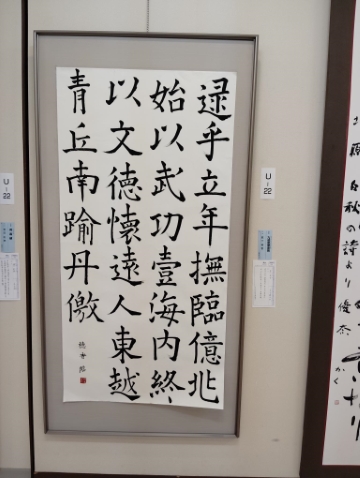 逮乎立年撫臨億兆
始以武功壹海内終
以文德懷遠人東越
青丘南踰丹儌
U-22
U-22
秋の詩より